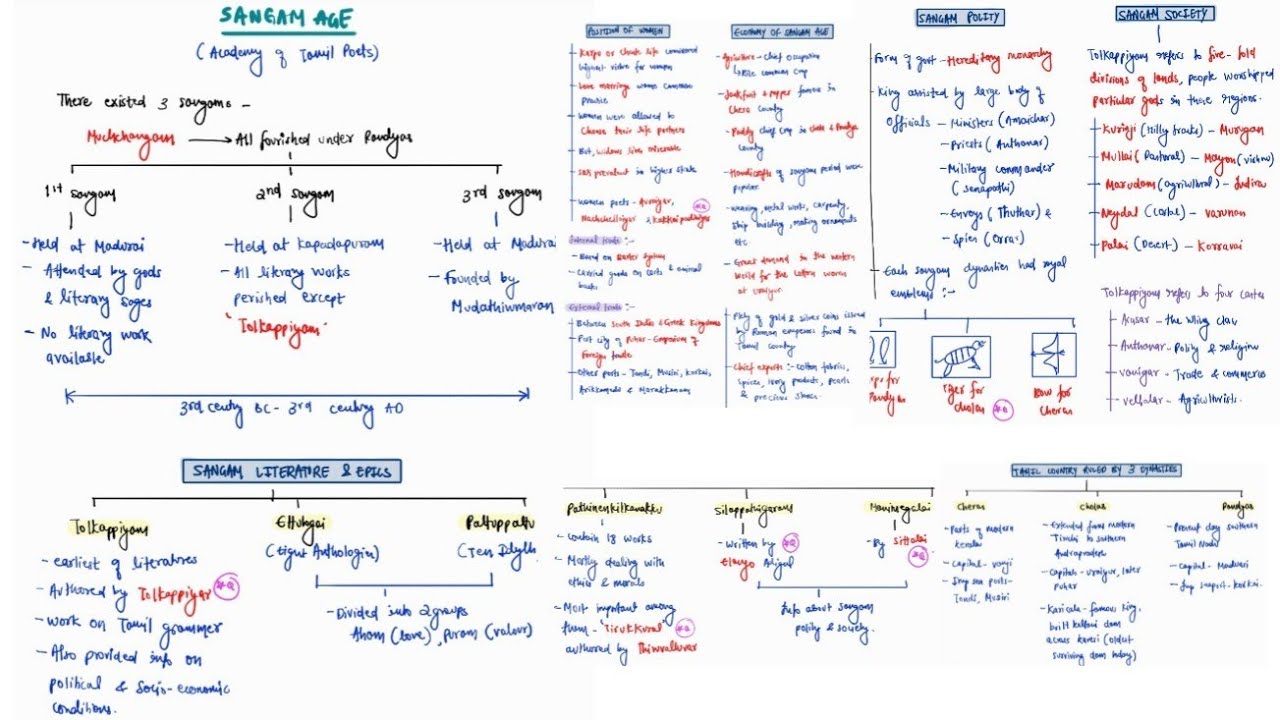 SANGAM AGE
(Academy of Tamil Poets)
There existed 3 sangams -
Muchchangam → All flourished under Pandyas
1st sangam
- Held at Madurai
- Attended by gods
& literary sages
- No literary work
available
2nd sangam
- Held at kapadapuram
- All literary works
perished except
'Tolkappiyam'
3rd sangam
- Held at Madurai
- Founded by
Mudathirumaran
3rd century BC - 3rd century AD
POSITION OF WOMEN
highest virtue for women
- Love marriage was common
practice
- Women were allowed to
choose their life partners
- But, widows lives miserable
- Sati prevalent in higher strata
- Women poets - Avvaiyar,
Nachchellaiyar & Kakkaipadiniyar
Internal trade :-
- Based on Barter System
- Carried goods on carts & animal
backs
External trade :-
- Between South India & Greek Kingdoms
- Port city of Puhar - Emporium of
Foreign trade
- Other ports - Tondi, Musiri, korkai,
Arikkamedu & Marakkanam
ECONOMY OF SANGAM AGE
- Agriculture - chief occupation
common crop
- Jackfruit & pepper famous in
Chera country
- Paddy chief crop in chola & Pandya
country
- Handicrafts of sangam period were
popular
- weaving, metal works, carpentry,
ship building, making ornaments
etc
- Great demand in the western
world for the cotton
at uraiyur.
- Plenty of gold & silver coins issued
by Roman emperors found in
Tamil country
- Chief exports :- cotton fabrics,
spices, ivory products, pearls
& precious stones
SANGAM POLITY
- Form of govt - Hereditary monarchy
- King assisted by large body of
officials - Ministers (Amaichar)
- Priests (Anthanar)
- Military commander
(senapathi)
- Envoys (Thuthar) &
- Spies (Orrar)
- Each sangam dynasties had royal
emblems :-
for
Pandyas
Tiger for
cholas
Bow for
cheras
SANGAM SOCIETY
Tolkappiyam refers to five-fold
divisions of lands, people worshipped
particular gods in these regions.
- Kurinji (Hilly tracks) - Murugan
- Mullai (Pastoral) - Mayon (vishnu)
- Marudam (agricultural) - Indira
- Neydal (Coastal) - varunan
- Palai (Desert) - Korravai
Tolkappiyam refers to four castes
- Arasar - the ruling class
- Anthanar - Polity & religion
- vanigar - Trade & commerce
- vellalar - Agriculturists.
SANGAM LITERATURE & EPICS
Tolkappiyam
- earliest of literatures
- Authored by Tolkappiyar
- work on Tamil grammer
- Also provided info on
political & socio-economic
conditions.
Ettutogai
(Eight Anthologies)
Pattuppattu
(Ten Idylls)
- Divided into 2 groups
Aham (love), Puram (valour)
Pathinenkilkanakku
- Contain 18 works
- Mostly dealing with
ethics & morals
- Most important among
them - 'Tirukkural'
authored by Thiruvalluvar
Silappathigaram
- Written by
Elango Adigal
Manimegalai
- By Sittalai
Info about sangam
polity & society.
TAMIL COUNTRY RULED BY 3 DYNASTIES
Cheras
- Parts of modern
kerala
- Capital - vanji
- Imp sea ports -
Tondi, Musiri
Cholas
- Extended from modern
to southern
Andrapradesh
- Capital - uraiyur, later
puhar
- Karikala - famous king,
built kallanai dam
across kaveri (oldest
surviving dam today)
Pandyas
- Present day southern
Tamil Nadu
- Capital - Madurai
- Imp seaport - korkai.